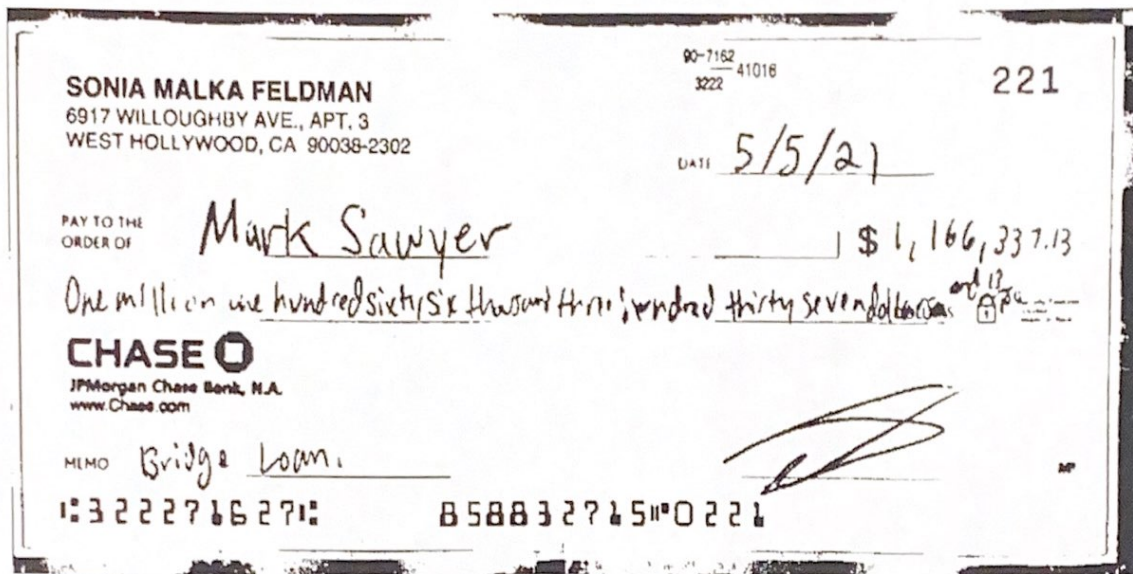 90-7162
3222 41016
221
SONIA MALKA FELDMAN
6917 WILLOUGHBY AVE., APT. 3
WEST HOLLYWOOD, CA 90038-2302
DATE 5/5/21
PAY TO THE
ORDER OF Mark Sawyer $ 1,166,337.13
One million one hundred sixty six thousand three hundred thirty seven dollars and 13
CHASE
JPMorgan Chase Bank, N.A.
www.Chase.com
MEMO Bridge Loan.
MP
⑆322271627⑆ 858832715⑈0221